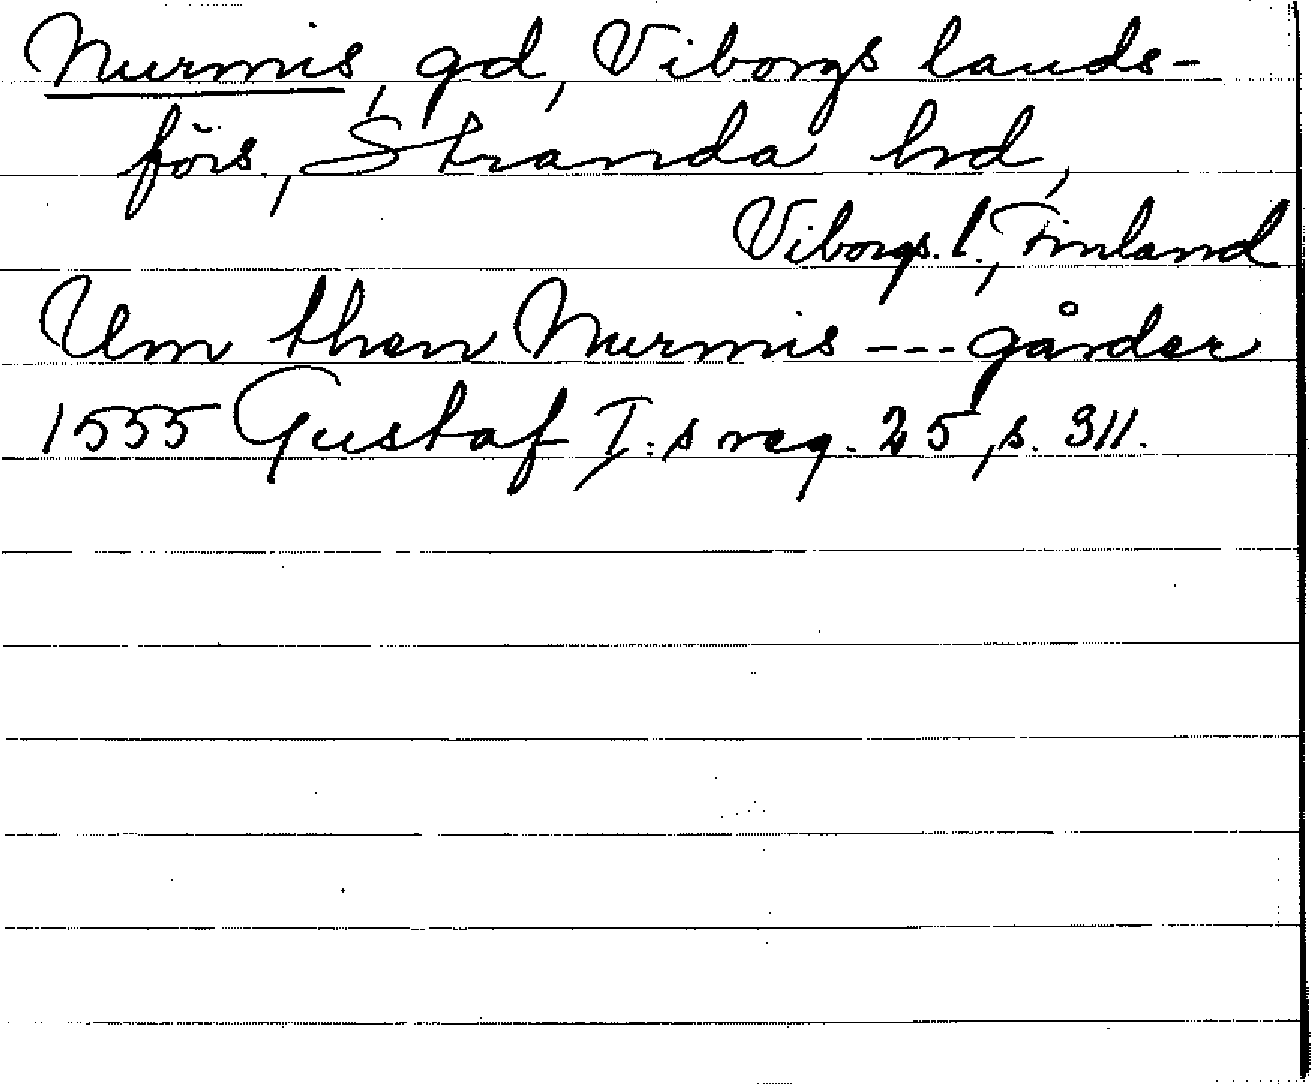 Nurmis, gd, Viborgs lands-
förs., Stranda hd,
Viborgs. l., Finland
Um then Nurmis --- gårder
1555 Gustaf I:s reg. 25, s. 311.